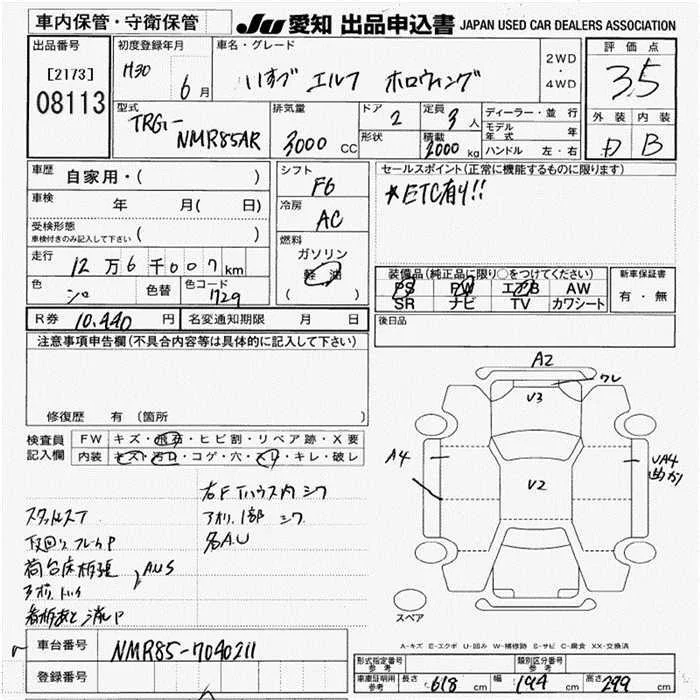 車内保管・守衛保管
JU 愛知 出品申込書 JAPAN USED CAR DEALERS ASSOCIATION
出品番号
[2173]
08113
初度登録年月
H30 6月
車名・グレード
いすゞ エルフ ホロウィング
2WD
・
4WD
評価点
3.5
外装 内装
D B
型式
TRG-
NMR85AR
排気量
3000 CC
ドア
2
形状
定員
3人
積載
2000kg
ディーラー・並行
モデル年式 年
ハンドル 左・右
車歴
自家用・( )
車検
年 月( 日)
受検形態
車検付きのみ記入して下さい ( )
走行
12万6千007km
色
シロ
色替
色コード
729
シフト
F6
冷房
AC
燃料
ガソリン
軽油
( )
セールスポイント(正常に機能するものに限ります)
*ETC有り!!
装備品(純正品に限り○をつけてください)
PS PW エアB AW
SR ナビ TV カワシート
新車保証書
有・無
後日品
R券 10,440円 名変通知期限 月 日
注意事項申告欄(不具合内容等は具体的に記入して下さい)
修復歴 有 (箇所 )
検査員
記入欄
FW キズ・飛石・ヒビ割・リペア跡・X要
内装 キズ・汚レ・コゲ・穴・スレ・キレ・破レ
右Fハウス内シワ
スタッドレスT アオリ1部 シワ
下回り フレームP 各A.U
荷台床板張
AUS
看板あと消しP
車台番号 NMR85-7040211
登録番号
A2
ワレ
V3
A4
V2
スペア
A-キズ E-エクボ U-凹み W-補修跡 S-サビ C-腐食 XX-交換済
形式指定番号
参考
類別区分番号
参考
車庫証明用
参考
長さ 618 cm 幅 194 cm 高さ 299 cm